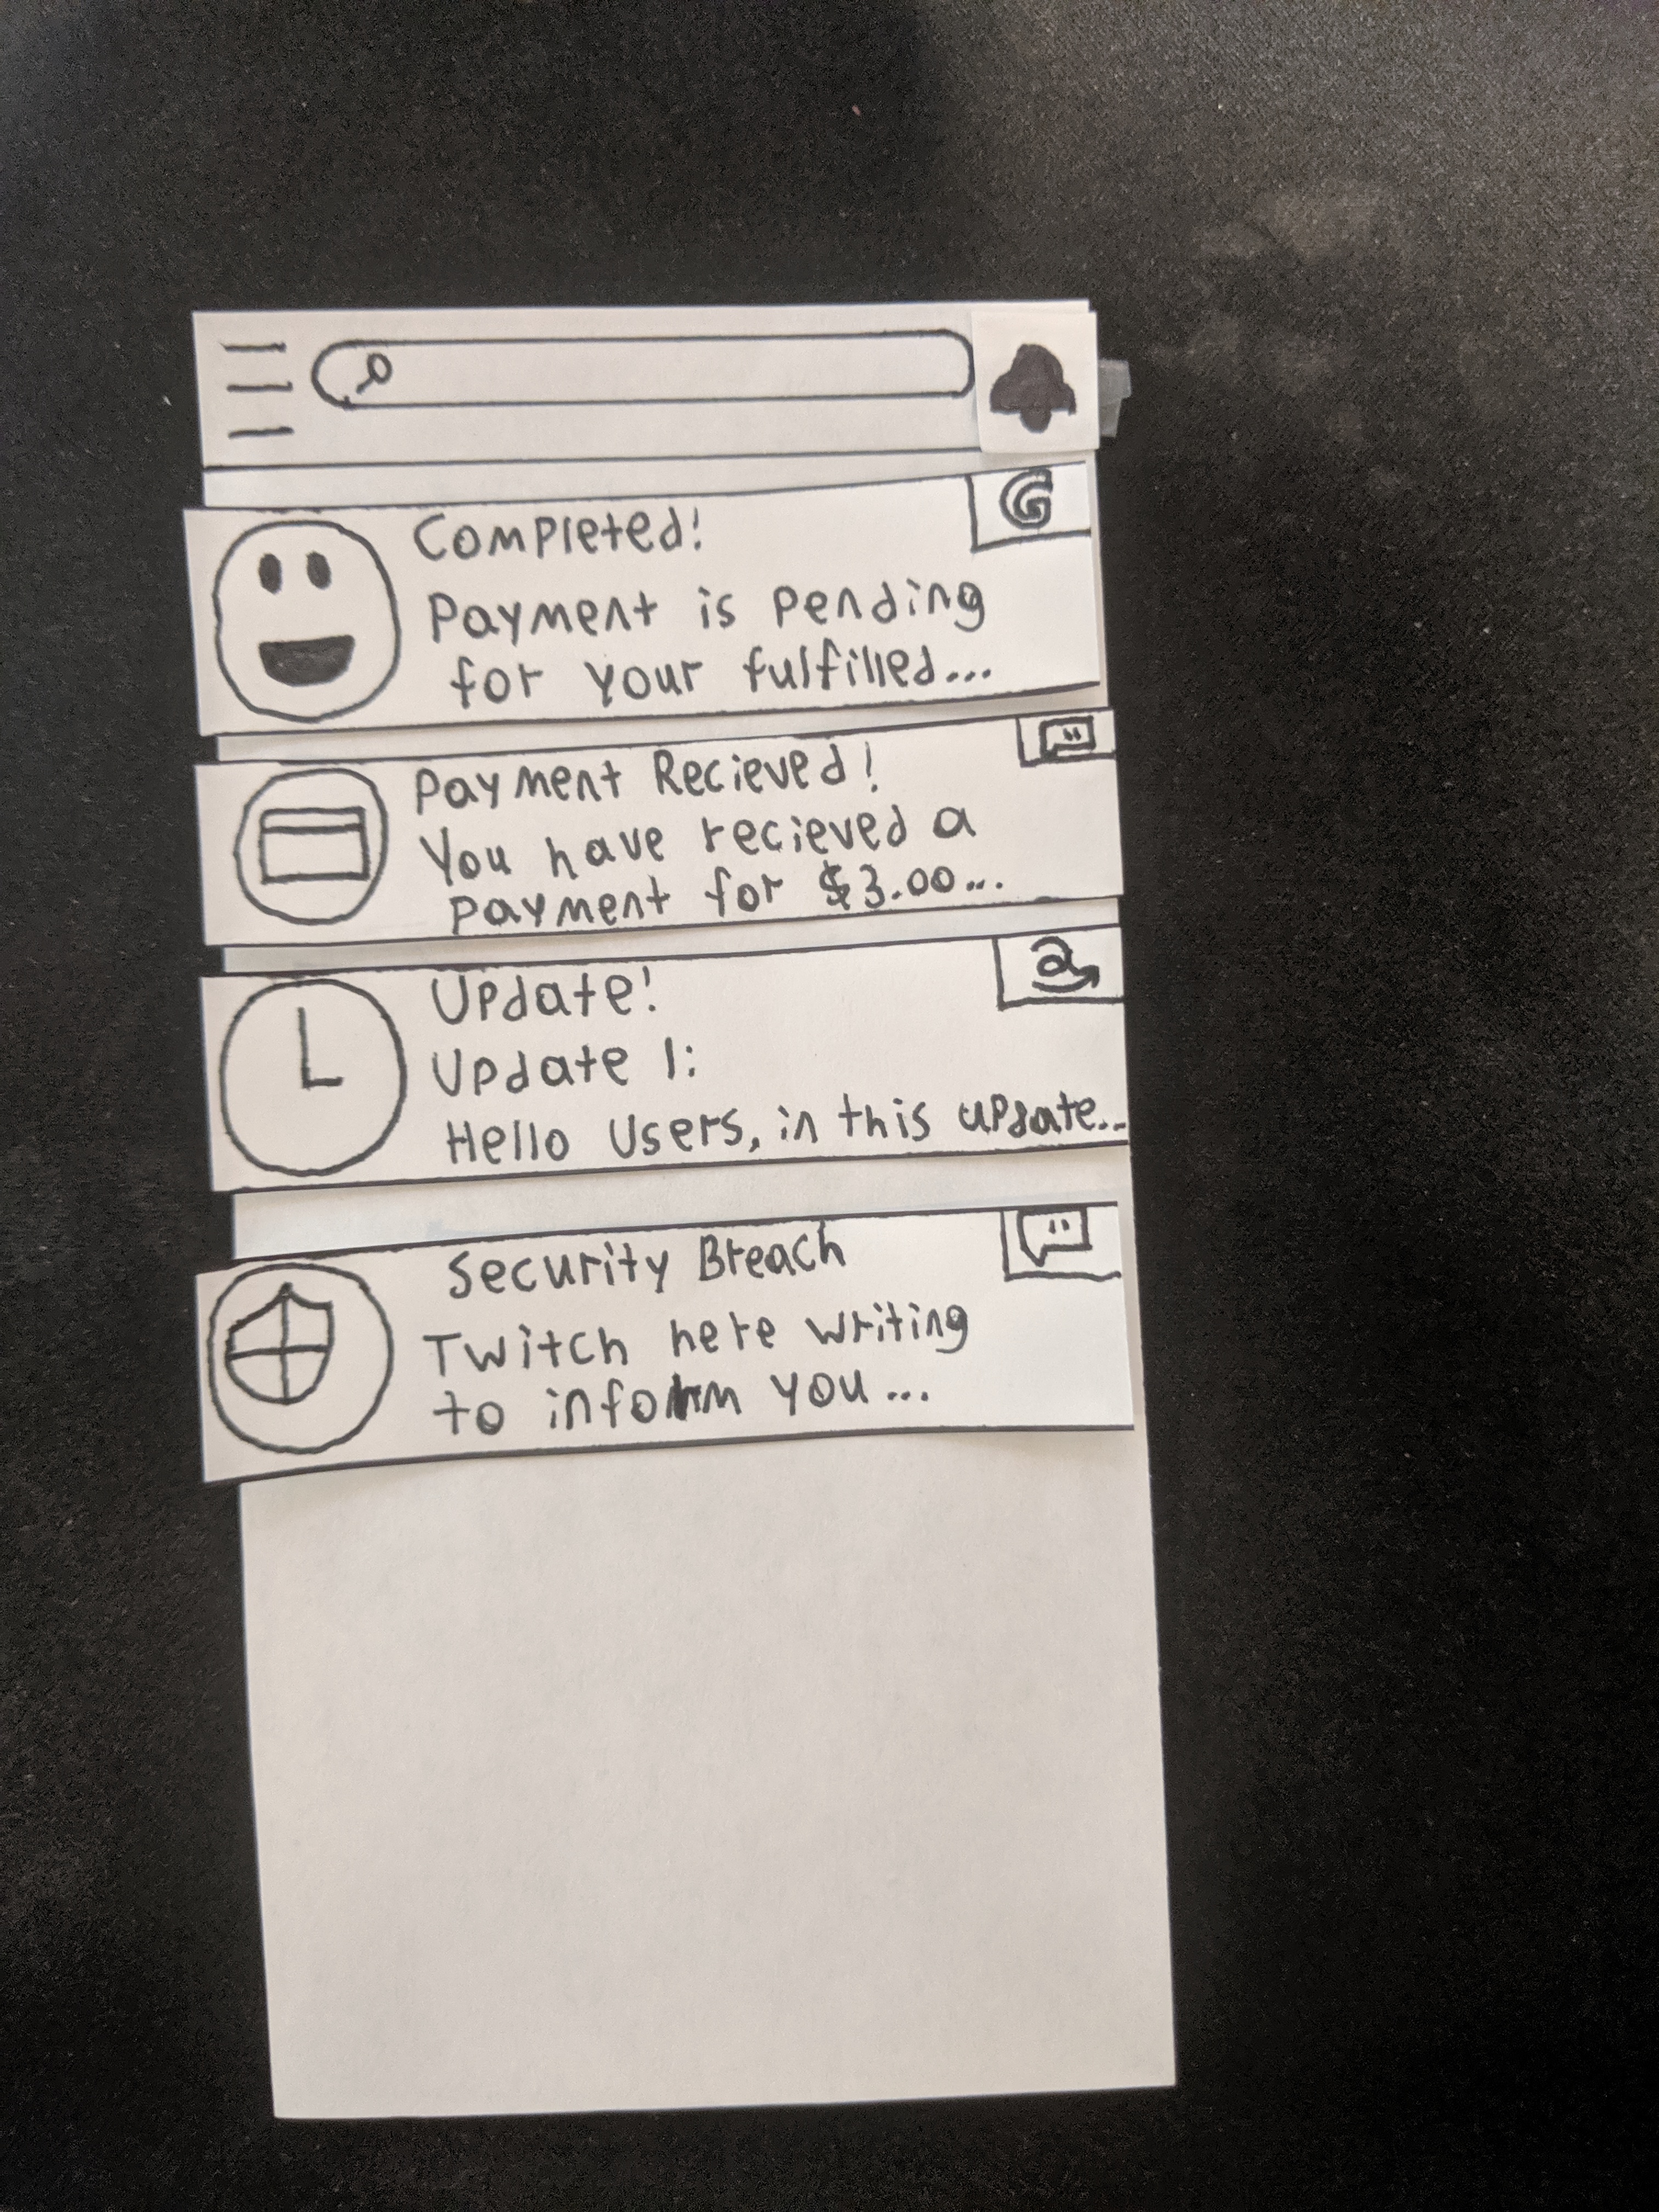 G
Completed!
Payment is pending
for your fulfilled...
Payment Recieved!
You have recieved a
payment for $3.00...
a
Update!
Update 1:
Hello Users, in this update...
Security Breach
Twitch here writing
to inform you...